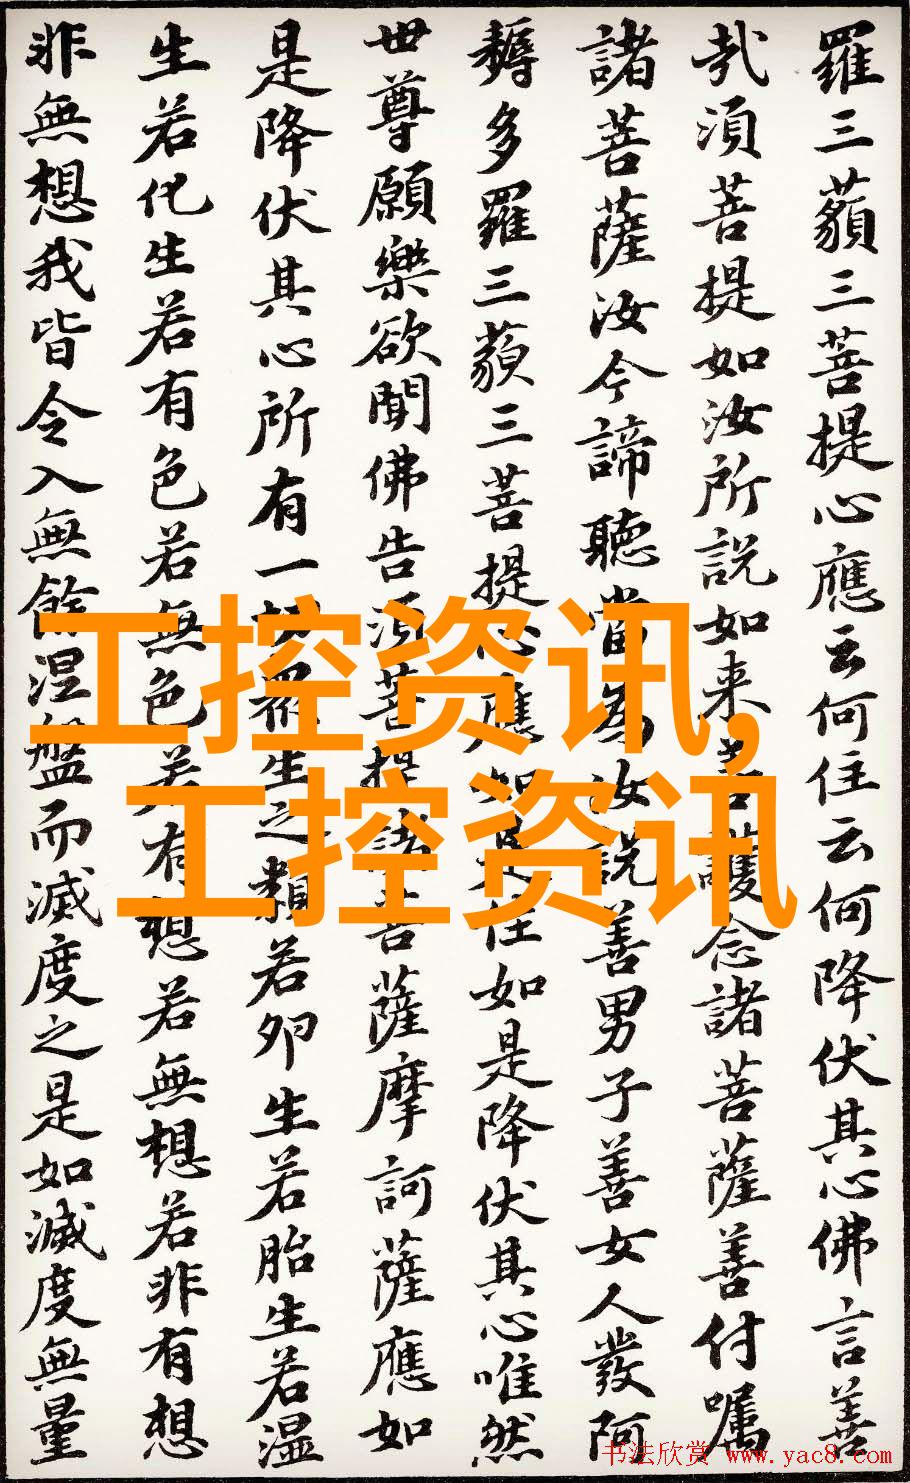 羅三藐三菩提心應云何住云何降伏其心佛言善
哉須菩提如汝所説如来善護念諸菩薩善付嘱
諸菩薩汝今諦聽當為汝説善男子善女人發阿
耨多羅三藐三菩提心應如是住如是降伏其心唯然
世尊願樂欲聞佛告須菩提諸菩薩摩訶薩應如
是降伏其心所有一切眾生之類若卵生若胎生若湿
生若化生若有色若無色若有想若無想若非有想
非無想我皆令入無餘涅盤而滅度之是如滅度無量
工控资讯,
工控资讯
书法欣赏 www.yac8.com